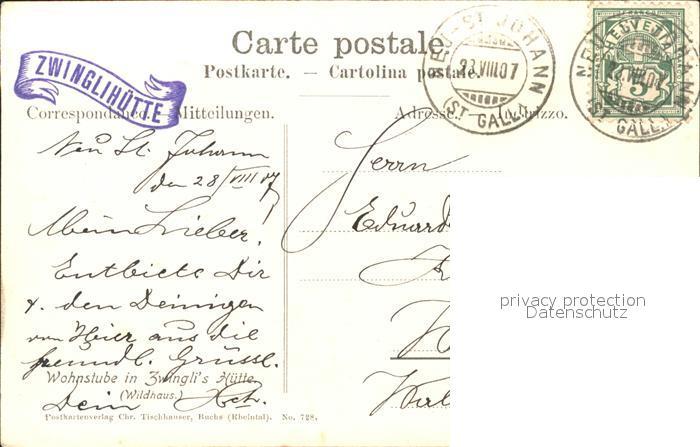 Carte postale.
Postkarte. — Cartolina postale.
ZWINGLIHÜTTE
NEU-ST JOHANN
23.VIII.07
(ST GALLEN)
HELVETIA
5
Correspondance. Mitteilungen.
Adresse. Indirizzo.
Neu St. Johann
den 28/VIII 07
Mein Lieber!
Entbiete Dir
& den Deinigen
von Hier aus die
freundl. Grüsse.
Dein
Wohnstube in Zwingli's Hütte
(Wildhaus.)
Postkartenverlag Chr. Tischhauser, Buchs (Rheintal). No. 728.
Herrn
Eduard
privacy protection
Datenschutz